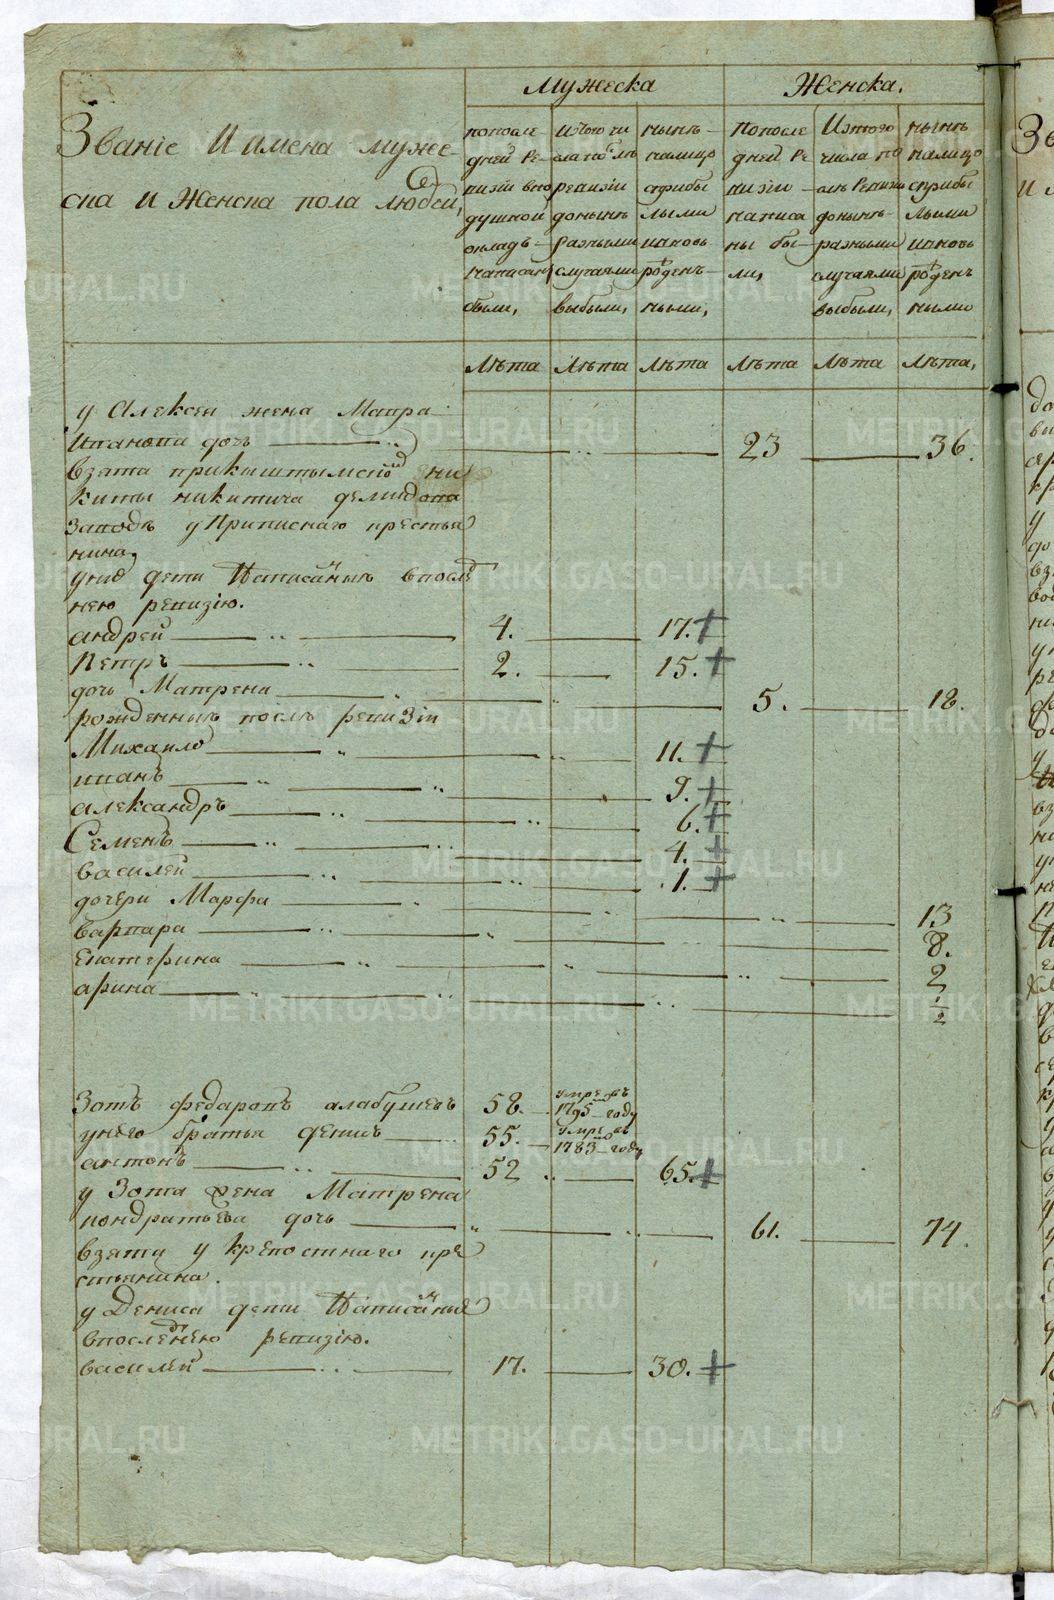 Мужеска
Женска.
Званiе И имена муже-
ска и Женска пола людей,
попосле-
дней Ре-
визiи впо
душной
окладъ
написаны
были,
Изтого чи
сла послѣ
ревизiи
донынѣ
разными
случаями
выбыли,
нынѣ
налицо
сприбы
лыми
ивновь
рожден-
ными,
Попосле
дней Ре
визiи
написа
ны бы-
ли,
Изтого
числа по
слѣ Ревизiи
донынѣ-
разными
случаями
выбыли,
нынѣ
налицо
сприбы
лыми
ивновь
рожден
ными
Лѣта Лѣта Лѣта Лѣта Лѣта Лѣта,
у Алексея жена Мавра
Иванова дочь 23 36.
взята прикыштымскомъ ни
киты никитича демидова
заводѣ у Приписнаго крестья
нина,
унихъ дети Написанныя впослѣд
нею ревизiю.
андрей 4. 17. +
Петръ 2. 15. +
дочь Матрена 5. 18.
рожденныя послѣ ревизiи
Михайло 11. +
иванъ 9. +
александръ 6. +
Семенъ 4. +
василей 1. +
дочери Марфа 13
варвара 8.
Екатерина 2
арина 1/2
Зотъ федаровъ алабушевъ 58. умре въ 1795 году
унего братья денисъ 55. умре въ 1783 году
антонъ 52 65. +
у Зота жена Матрена
кондратьева дочь 61. 74.
взята у крепостнаго кре
стьянина.
у Дениса дети Написанныя
впоследнею ревизiю.
василей 17. 30. +
METRIKI.GASO-URAL.RU